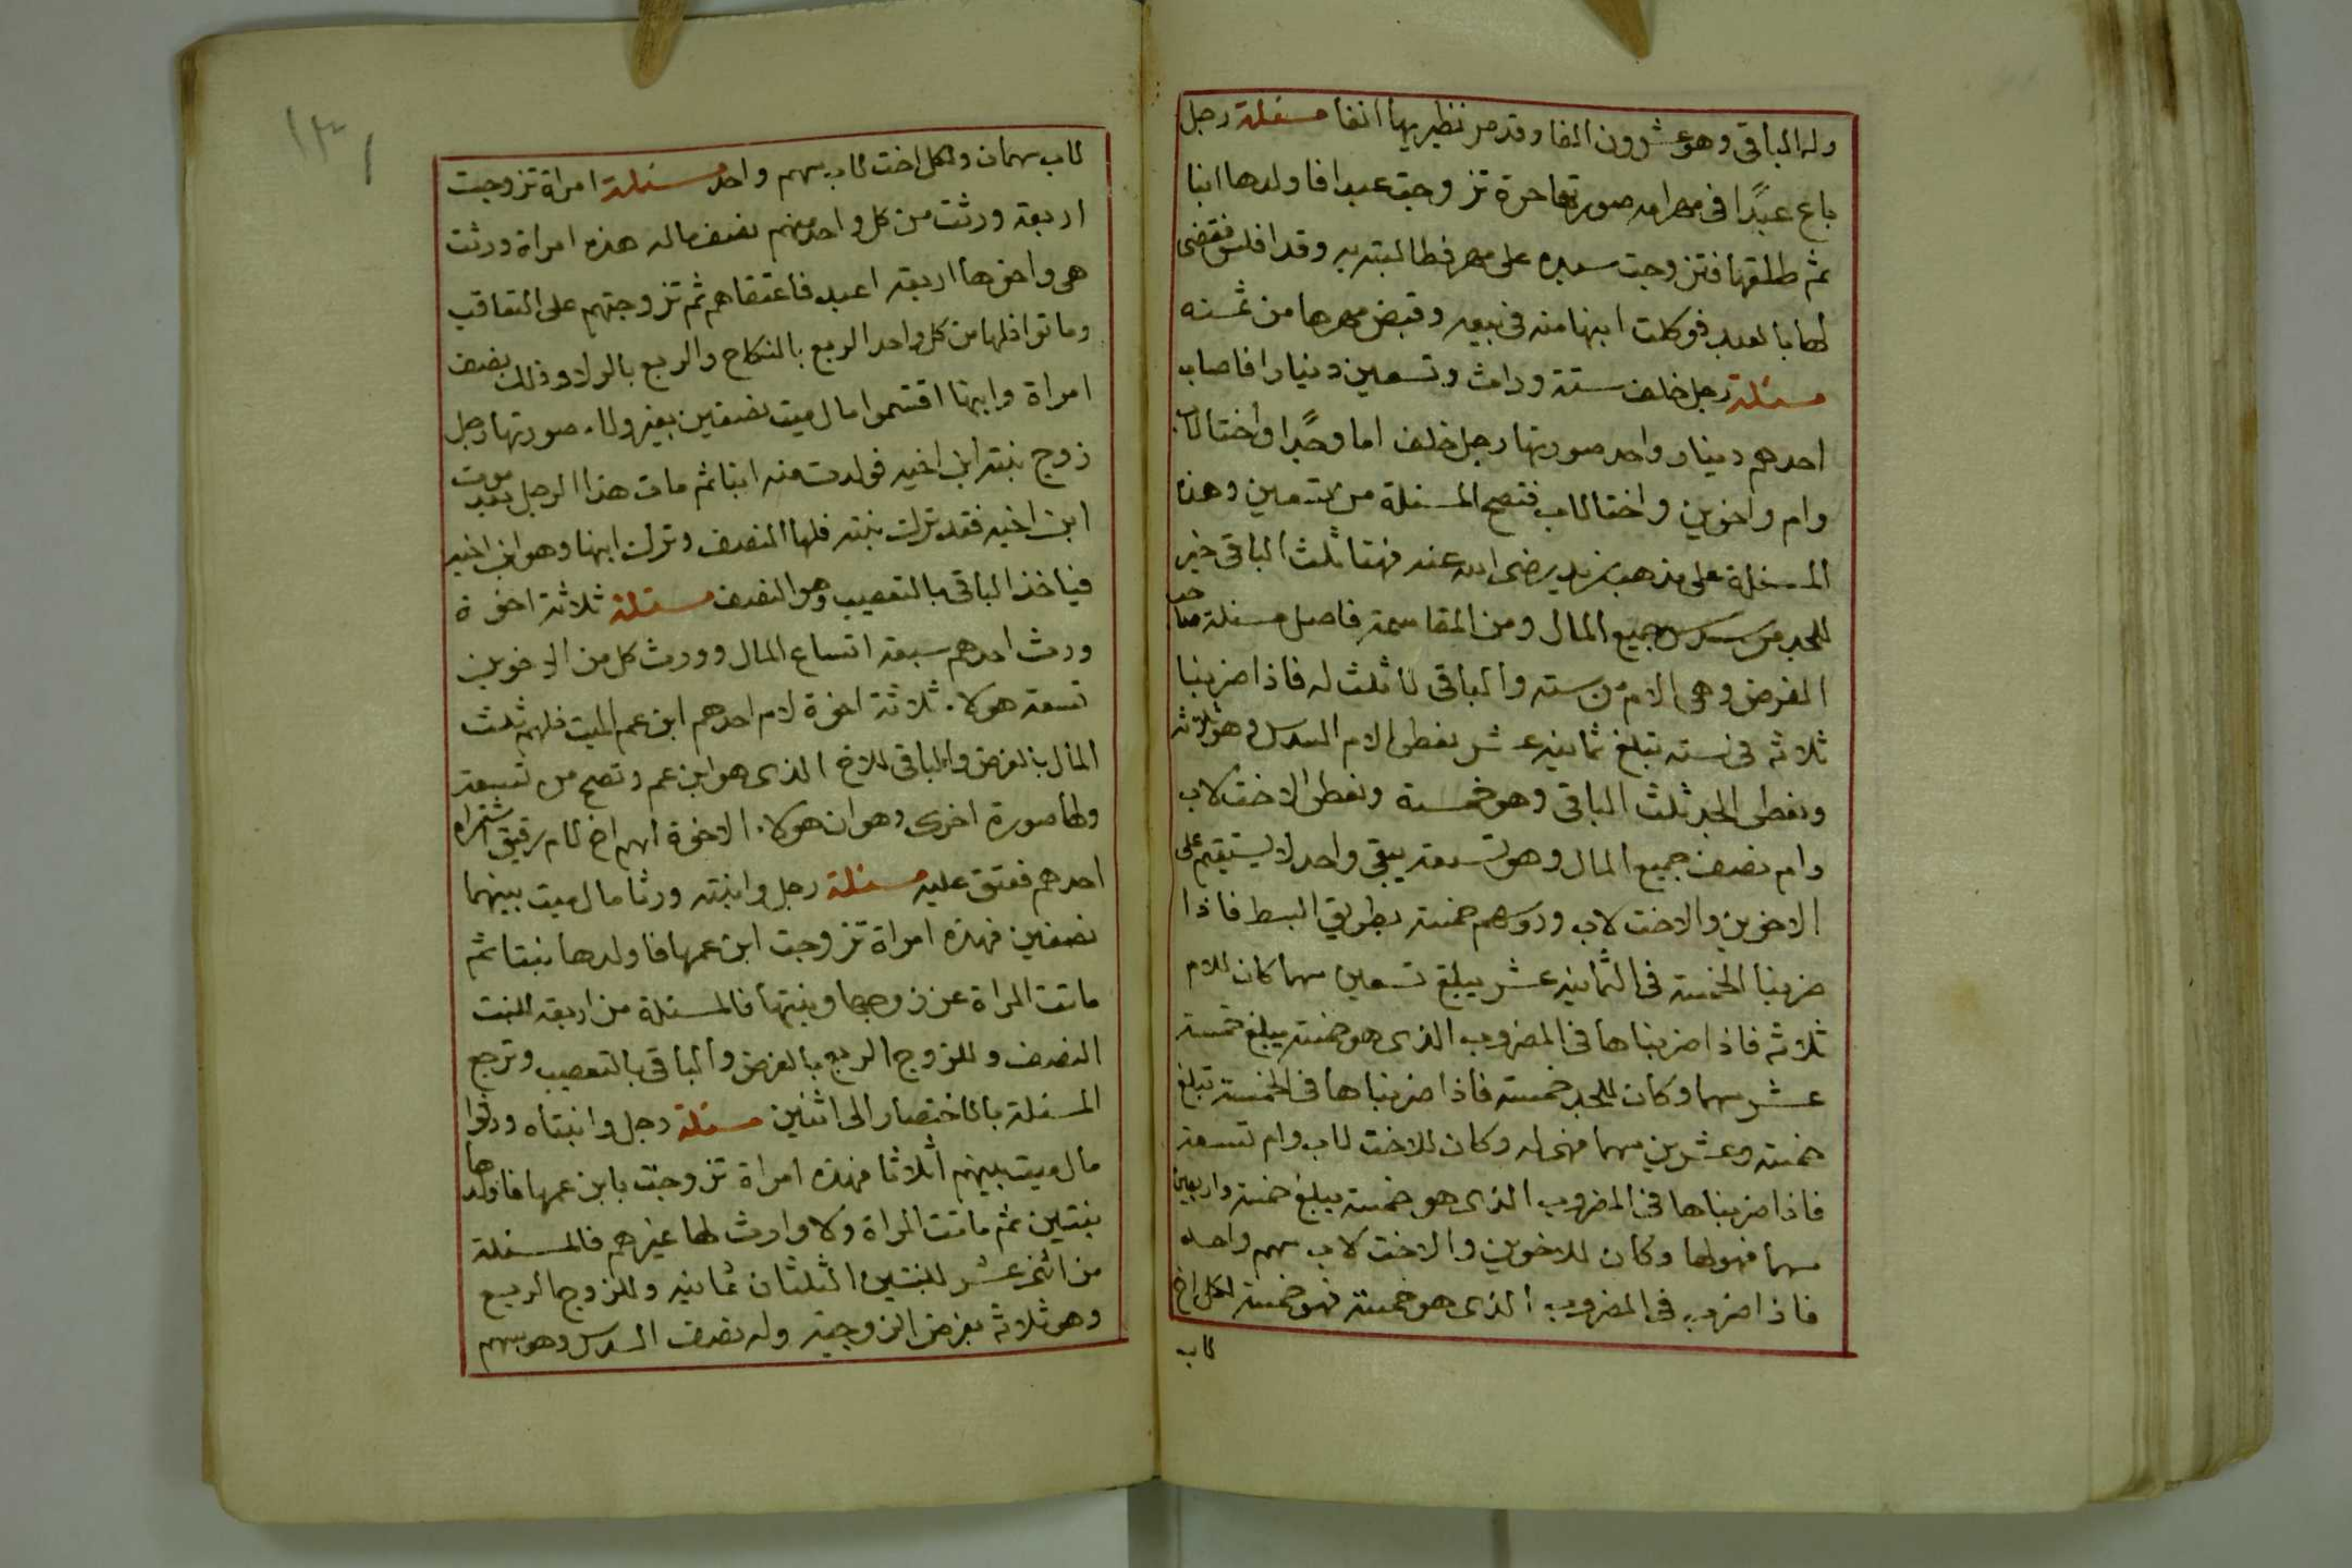 وله الباقى وهو عشرون الفا وقد مر نظيريها انفا مسئلة رجل
باع عبدًا فى مهر امه صورتها حرة تزوجت عبدا فاولدها ابنا
ثم طلقها فتزوجت سيده على مهر فطالبته به وقد افلس فقضى
لها بالعبد فوكلت ابنها منه فى بيعه وقبض مهرها من ثمنه
مسئلة رجل خلف ستة وراث وتسعين دينارا فاصاب
احدهم دينار واحد صورتها رجل خلف اما وجدًا واختا لاب
وام واخوين واختا لاب فتصح المسئلة من تسعين وهذه
المسئلة على مذهب زيد رضى الله عنه فهنا ثلث الباقى خير
للجد من سدس جميع المال ومن المقاسمة فاصل مسئلة صاحب
الفرض وهى الام من ستة والباقى لا ثلث له فاذا ضربنا
ثلاثه فى سته تبلغ ثمانيه عشر نعطى الام السدس وهو ثلاثه
ونعطى الجد ثلث الباقى وهو خمسة ونعطى الاخت لاب
وام نصف جميع المال وهو تسعة يبقى واحد لا يستقيم على
الاخوين والاخت لاب ورؤسهم خمسة بطريق البسط فاذا
ضربنا الخمسة فى الثمانيه عشر يبلغ تسعين سهما كان للام
ثلاثه فاذا ضربناها فى المضروب الذى هو خمسة يبلغ خمسة
عشر سهما وكان للجد خمسة فاذا ضربناها فى الخمسة تبلغ
خمسة وعشرين سهما فهى له وكان للاخت لاب وام تسعة
فاذا ضربناها فى المضروب الذى هو خمسة يبلغ خمسة واربعين
سهما فهو لها وكان للاخوين والاخت لاب سهم واحد
فاذا ضرب فى المضروب الذى هو خمسة فهو خمسة لكل اخ
لاب
١٣١
لاب سهمان ولكل اخت لاب سهم واحد مسئلة امراة تزوجت
اربعة ورثت من كل واحد منهم نصف ماله هذه امراة ورثت
هى واخوها اربعة اعبد فاعتقاهم ثم تزوجتهم على التعاقب
وماتوا فلها من كل واحد الربع بالنكاح والربع بالولا وذلك نصف
امراة وابنها اقتسموا مال ميت نصفين بغير ولاء صورتها رجل
زوج بنته ابن اخيه فولدت منه ابنا ثم مات هذا الرجل بعد موت
ابن اخيه فقد ترك بنته فلها النصف وترك ابنها وهو ابن اخيه
فياخذ الباقى بالتعصيب وهو النصف مسئلة ثلاثة اخوة
ورث احدهم سبعة اتساع المال وورث كل من الاخوين
تسعه هولاء ثلاثة اخوة لام احدهم ابن عم الميت فلهم ثلث
المال بالفرض والباقى للاخ الذى هو ابن عم وتصح من تسعة
ولها صورة اخرى وهو ان هولاء الاخوة لهم اخ لام رقيق اشتراه
احدهم فعتق عليه مسئلة رجل وابنته ورثا مال ميت بينهما
نصفين فهذه امراة تزوجت ابن عمها فاولدها بنتا ثم
ماتت المراة عن زوجها وبنتها فالمسئلة من اربعة للبنت
النصف وللزوج الربع بالفرض والباقى بالتعصيب وترجع
المسئلة بالاختصار الى اثنين مسئلة رجل وابنتاه ورثوا
مال ميت بينهم اثلاثا فهذه امراة تزوجت بابن عمها فاولدها
بنتين ثم ماتت المراة ولا وارث لها غيرهم فالمسئلة
من اثنى عشر للبنتين الثلثان ثمانيه وللزوج الربع
وهو ثلاثه بفرض الزوجية وله نصف السدس وهو سهم